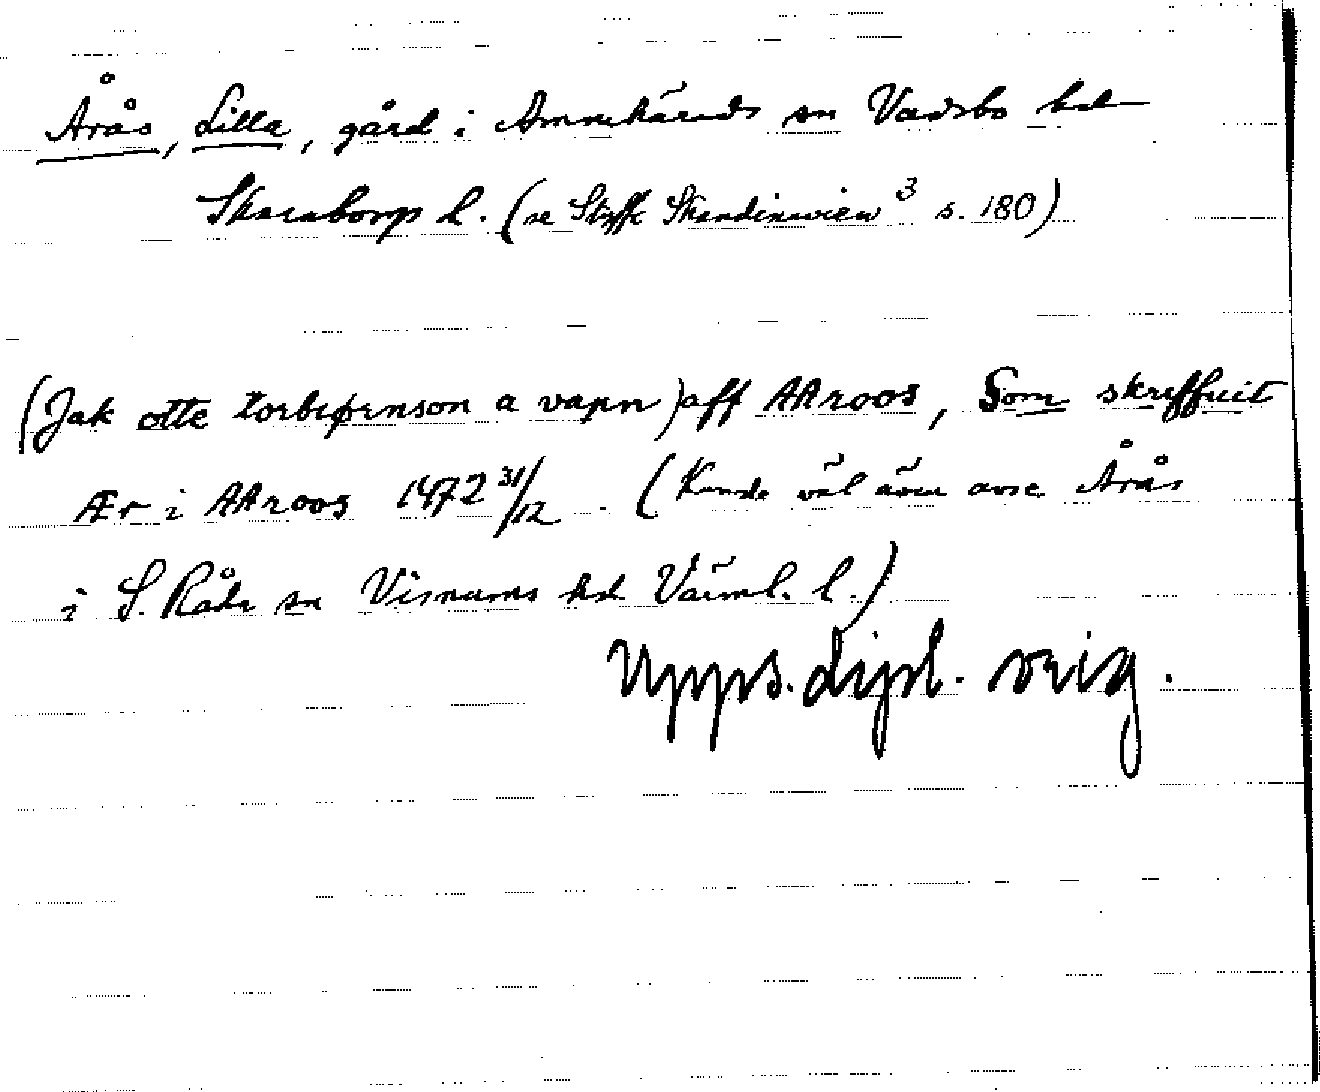 Årås, Lilla, gård i Amnehärads sn Vadsbo hd
Skaraborgs l. (se Styffe Skandinavien³ s. 180)
(Jak otte torbiørnson a vapn) aff AAroos, Som skreffuit
Ær i AAroos 1472 31/12. (Kunde väl även avse Årås
i S. Råda sn Visnums hd Värml. l.)
Upps. dipl. orig.